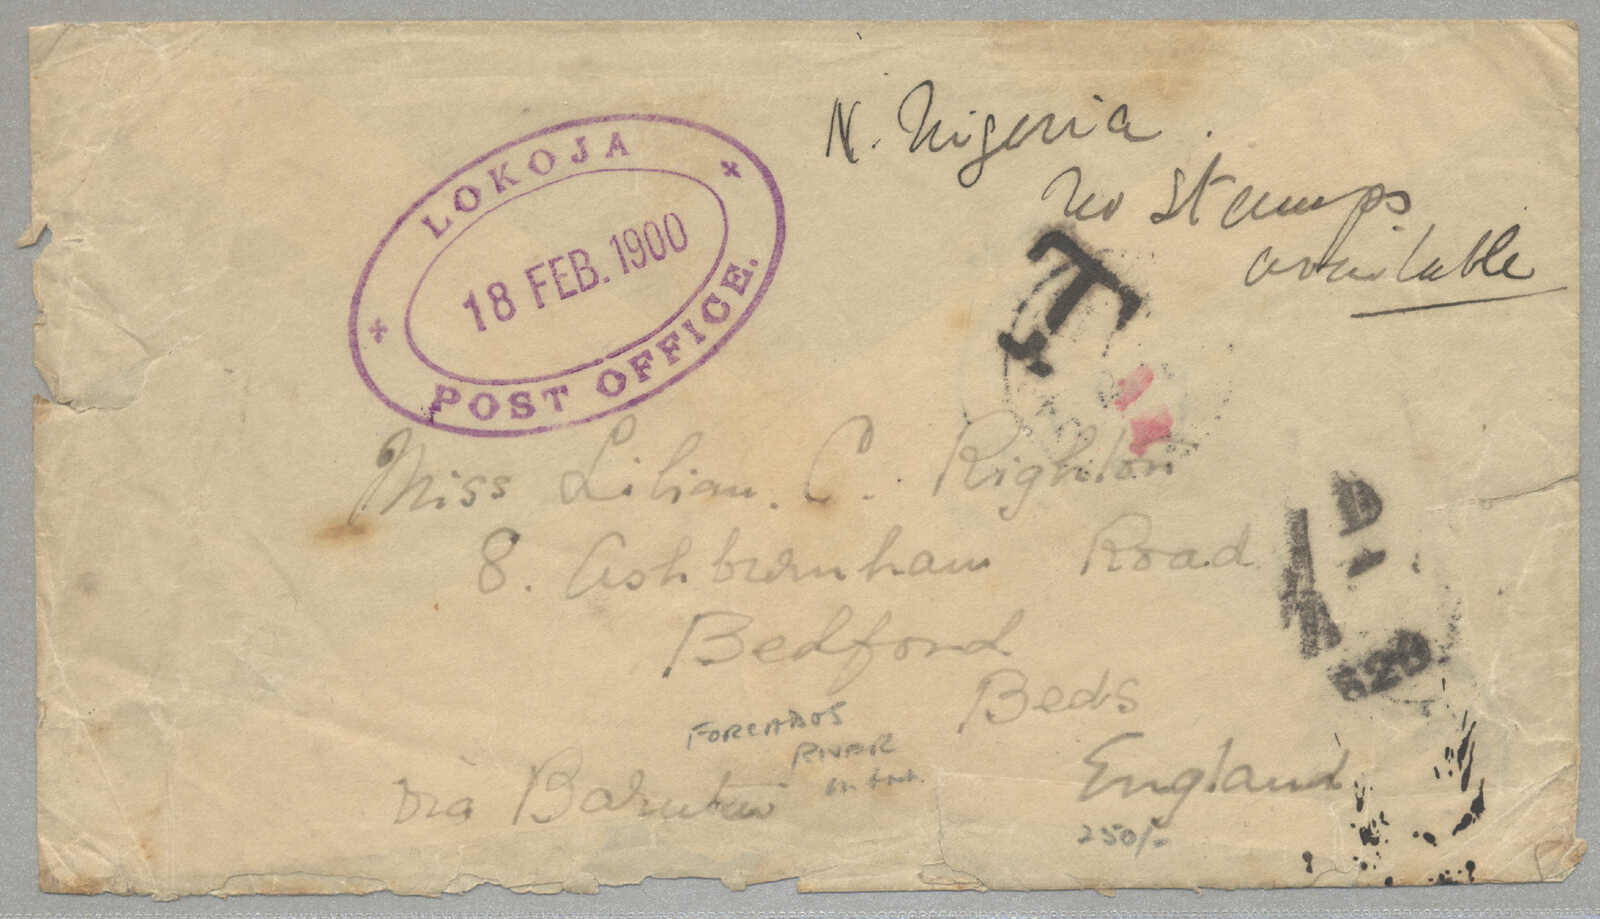 N. Nigeria.
No Stamps
available
LOKOJA
18 FEB. 1900
POST OFFICE.
T
Miss Lilian. C. Righton
8. Ashburnham Road
Bedford
Beds
England
via
FORCADOS
RIVER
250/-
D